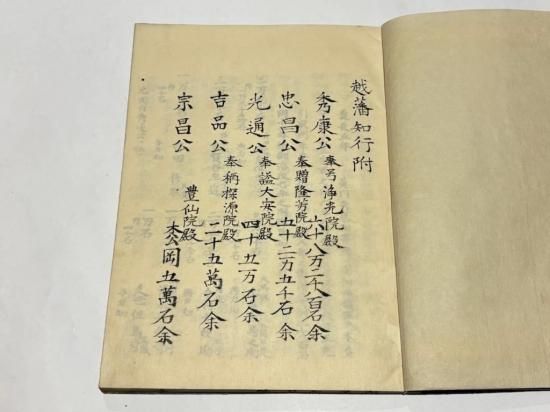 越藩知行附
秀康公 奉号浄光院殿 六十八万二千八百石余
忠昌公 奉贈隆芳院殿 五十二万五千石余
光通公 奉謚大安院殿 四十五万石余
吉品公 奉称探源院殿 二十五萬石余
宗昌公 豊仙院殿 枩岡五萬石余